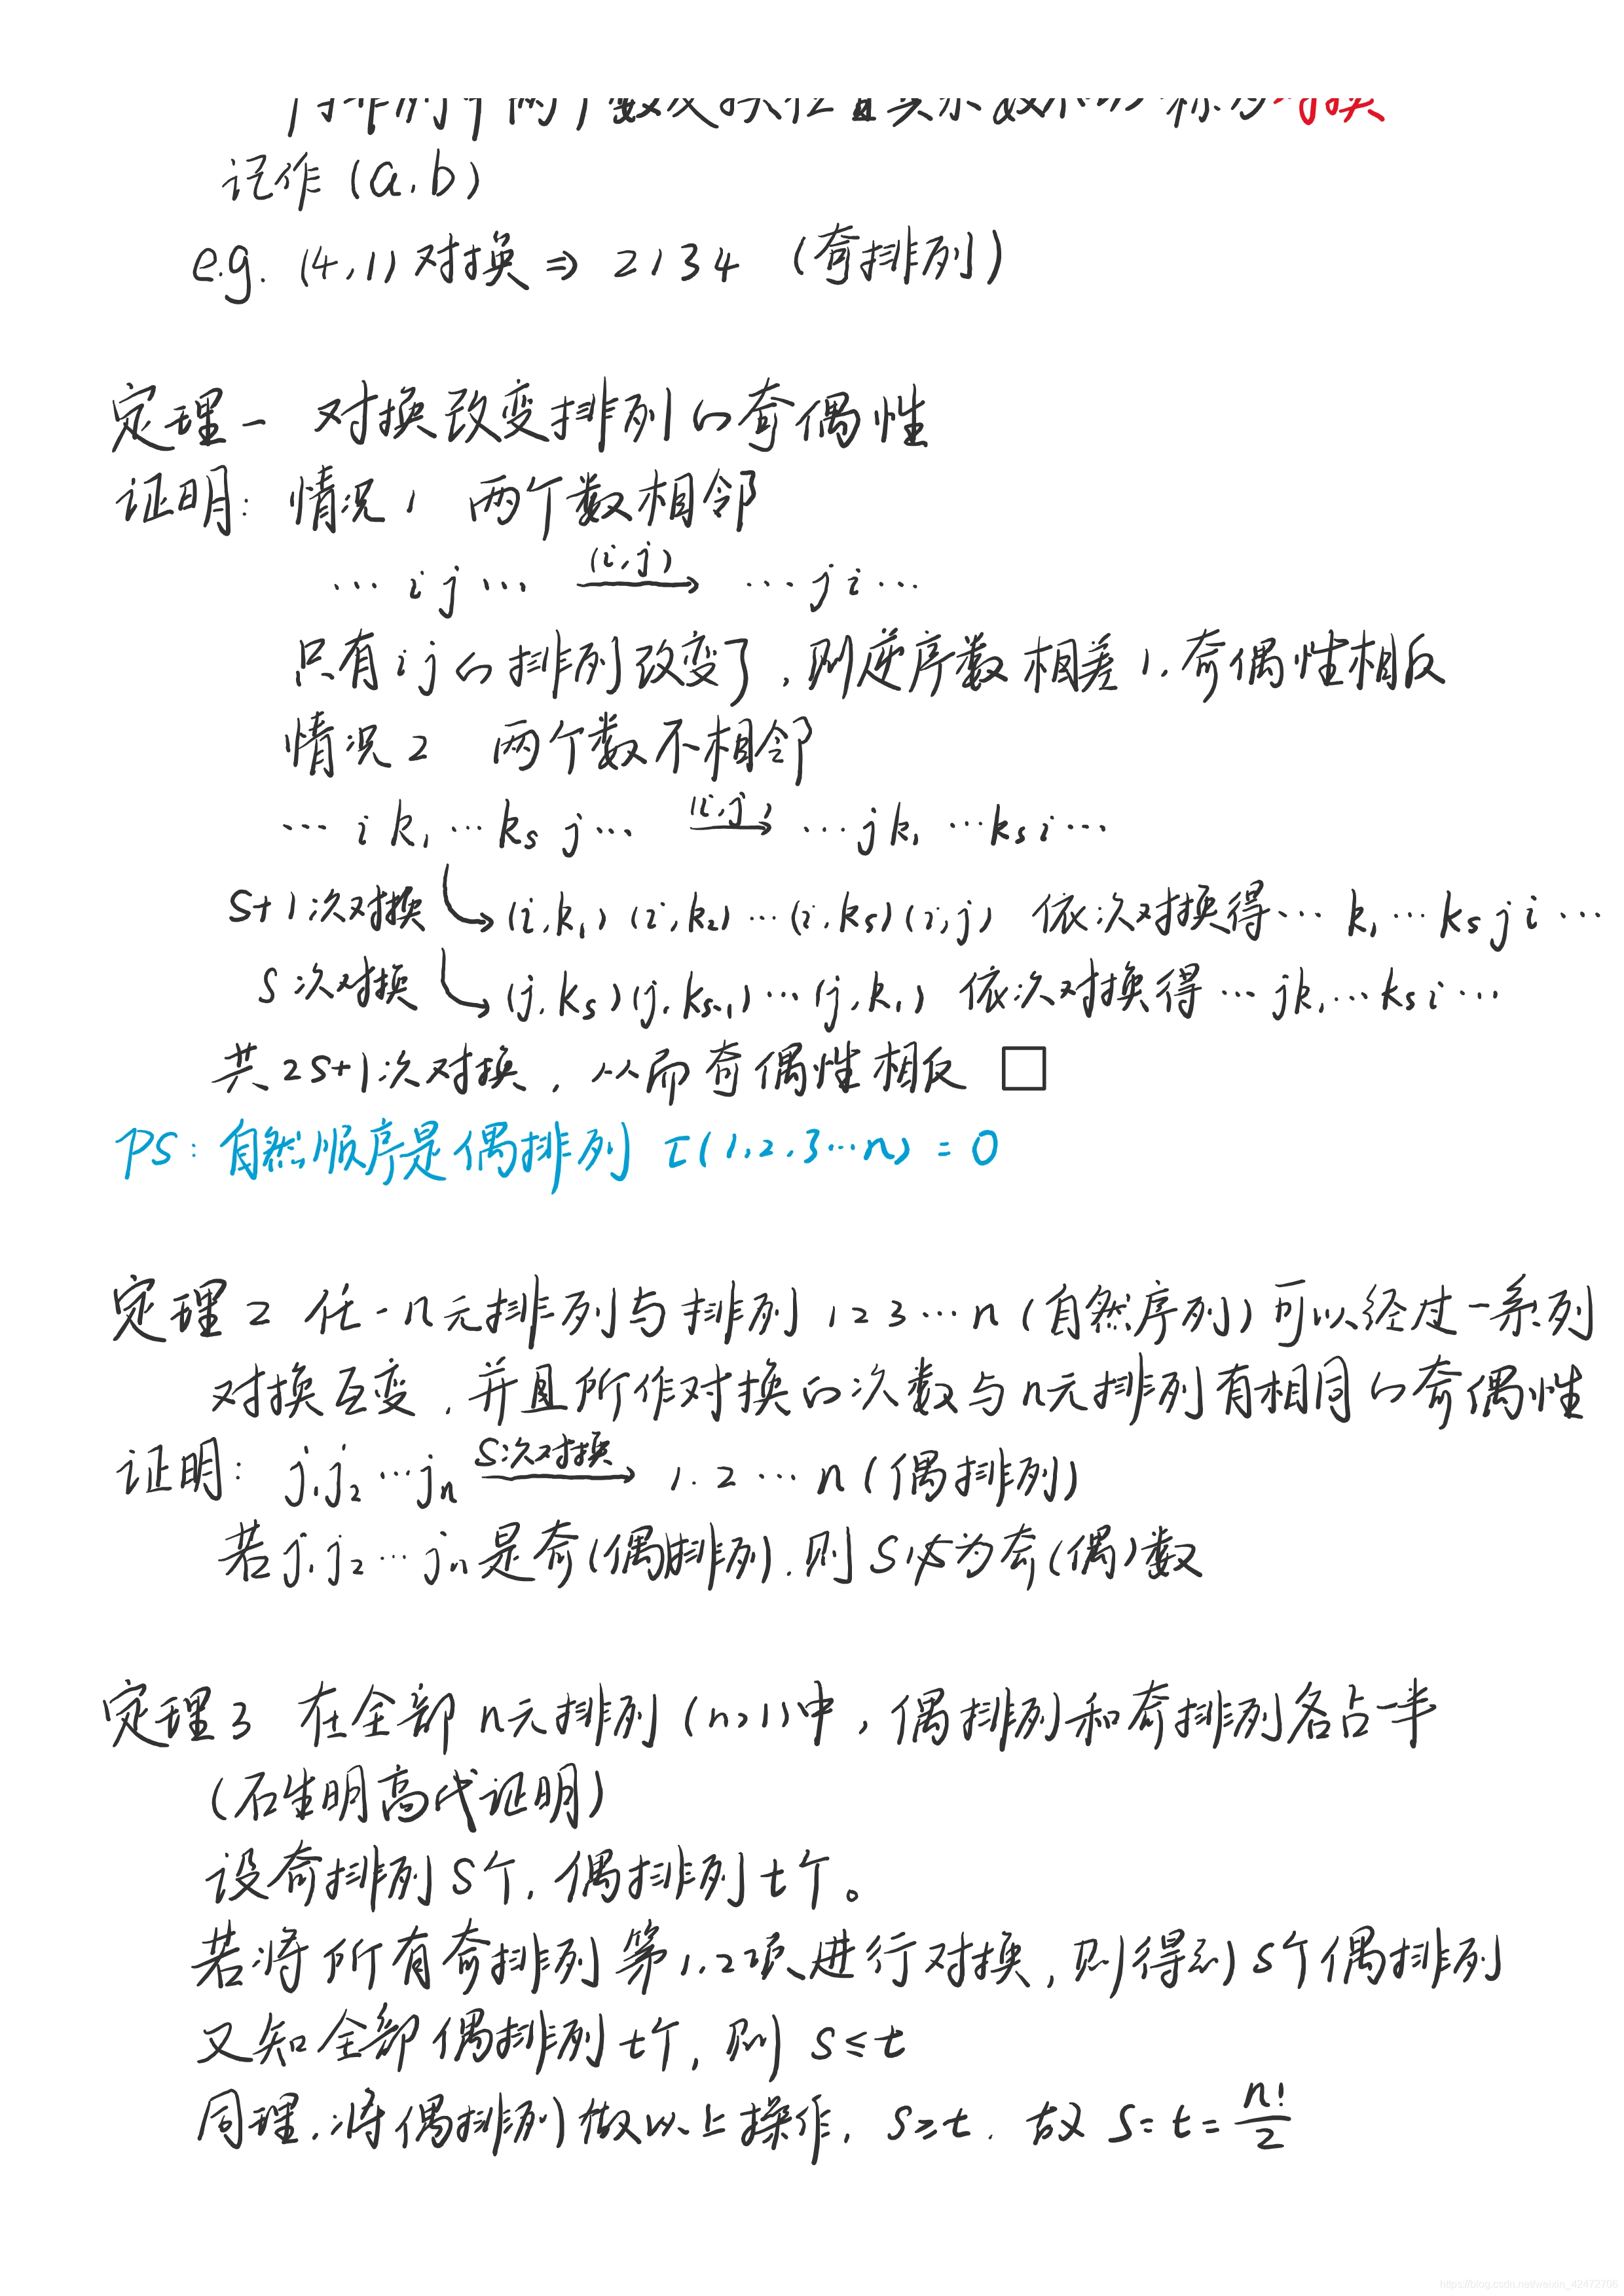 对换
记作 (a,b)
e.g. (4,1) 对换 ⇒ 2134 (奇排列)
定理一 对换改变排列的奇偶性
证明: 情况1 两个数相邻
… i j … (i,j)→ … j i …
只有 i j 的排列改变了, 则逆序数相差1, 奇偶性相反
情况2 两个数不相邻
… i k₁ … kₛ j … (i,j)→ … j k₁ … kₛ i …
S+1次对换 ↳ (i,k₁) (i,k₂) … (i,kₛ) (i,j) 依次对换得 … k₁ … kₛ j i …
S次对换 ↳ (j,kₛ) (j,kₛ₋₁) … (j,k₁) 依次对换得 … j k₁ … kₛ i …
共2S+1次对换, 从而奇偶性相反 □
PS: 自然顺序是偶排列 τ(1,2,3…n) = 0
定理2 任一n元排列与排列 1 2 3 … n (自然序列) 可以经过一系列
对换互变, 并且所作对换的次数与n元排列有相同的奇偶性
证明: j₁j₂…jₙ S次对换→ 1.2…n (偶排列)
若 j₁j₂…jₙ 是奇(偶)排列, 则S必为奇(偶)数
定理3 在全部n元排列 (n>1) 中, 偶排列和奇排列各占一半
(石生明高代证明)
设奇排列S个, 偶排列t个。
若将所有奇排列第1,2项进行对换, 则得到S个偶排列
又知全部偶排列t个, 则 S≤t
同理, 将偶排列做以上操作, S≥t, 故 S=t=n!/2
https://blog.csdn.net/weixin_42472706